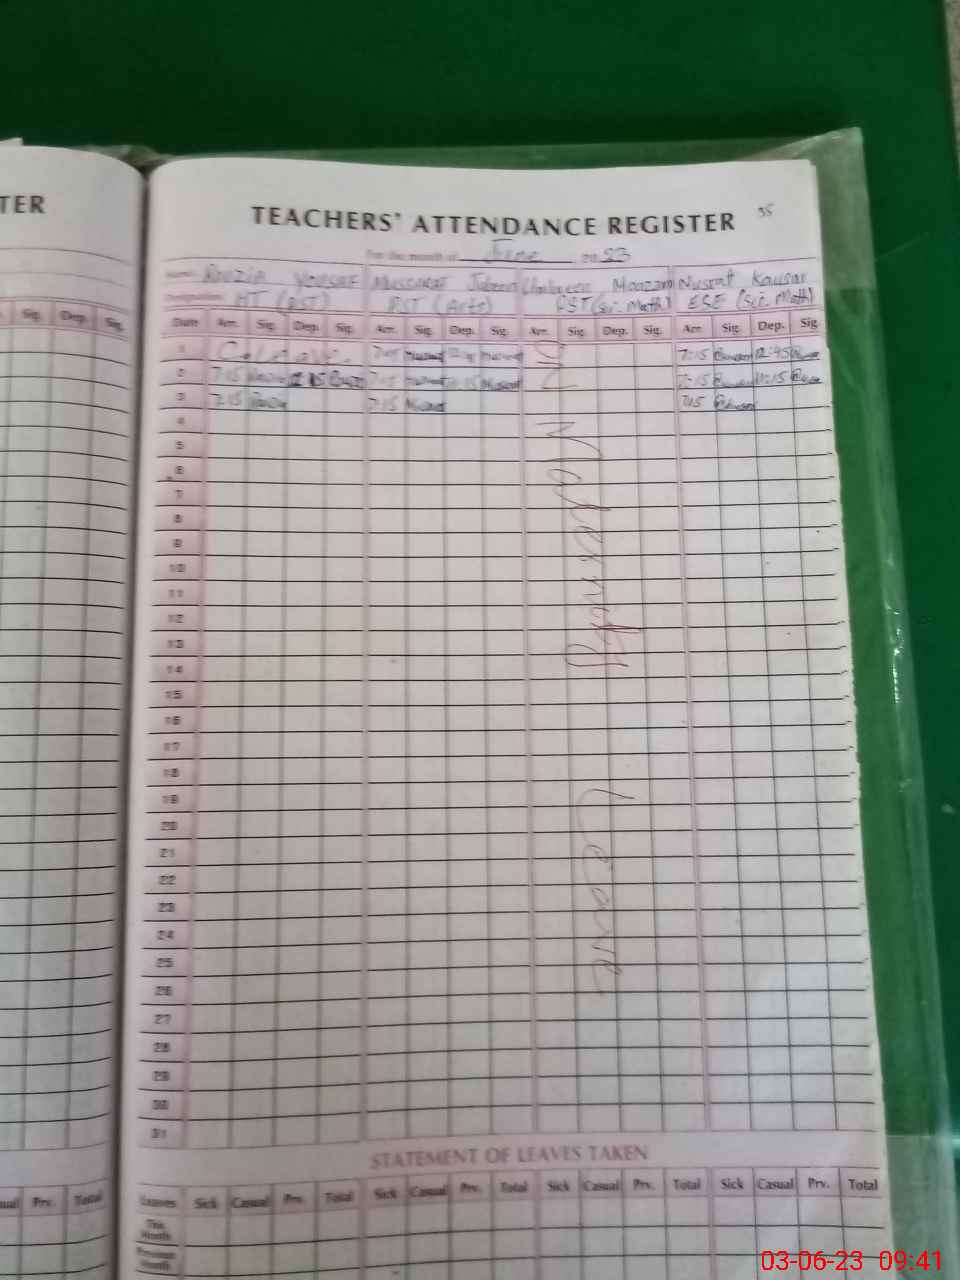 TER
TEACHERS' ATTENDANCE REGISTER 35
For the month of June 2023
Name: Mussarat Jabeen Umbreen Moazam Nusrat Kausar
Designation: HT (PST) PST (Arts) PST (Sci. Math) ESE (Sci. Math)
Sig. Dep. Sig. Date Arr. Sig. Dep. Sig. Arr. Sig. Dep. Sig. Arr. Sig. Dep. Sig. Arr. Sig. Dep. Sig.
1 C. Leave 7:15 12:45
2 7:15 7:15 11:15 7:15 11:15
3 7:15 7:15 7:15
On Maternity Leave
4
5
6
7
8
9
10
11
12
13
14
15
16
17
18
19
20
21
22
23
24
25
26
27
28
29
30
31
STATEMENT OF LEAVES TAKEN
Prv. Total Leaves Sick Casual Prv. Total Sick Casual Prv. Total Sick Casual Prv. Total Sick Casual Prv. Total
This Month
Previous Month
03-06-23 09:41